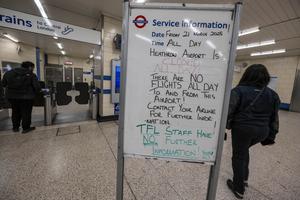 Service Information
Date FRIDAY 21 MAR 2025
Time ALL DAY
HEATHROW AIRPORT IS
CLOSED
ALL DAY
THERE ARE NO
FLIGHTS ALL DAY
TO AND FROM THIS
AIRPORT!
CONTACT YOUR AIRLINE
FOR FURTHER INFOR-
MATION.
TFL STAFF HAVE
NO FURTHER
INFORMATION!